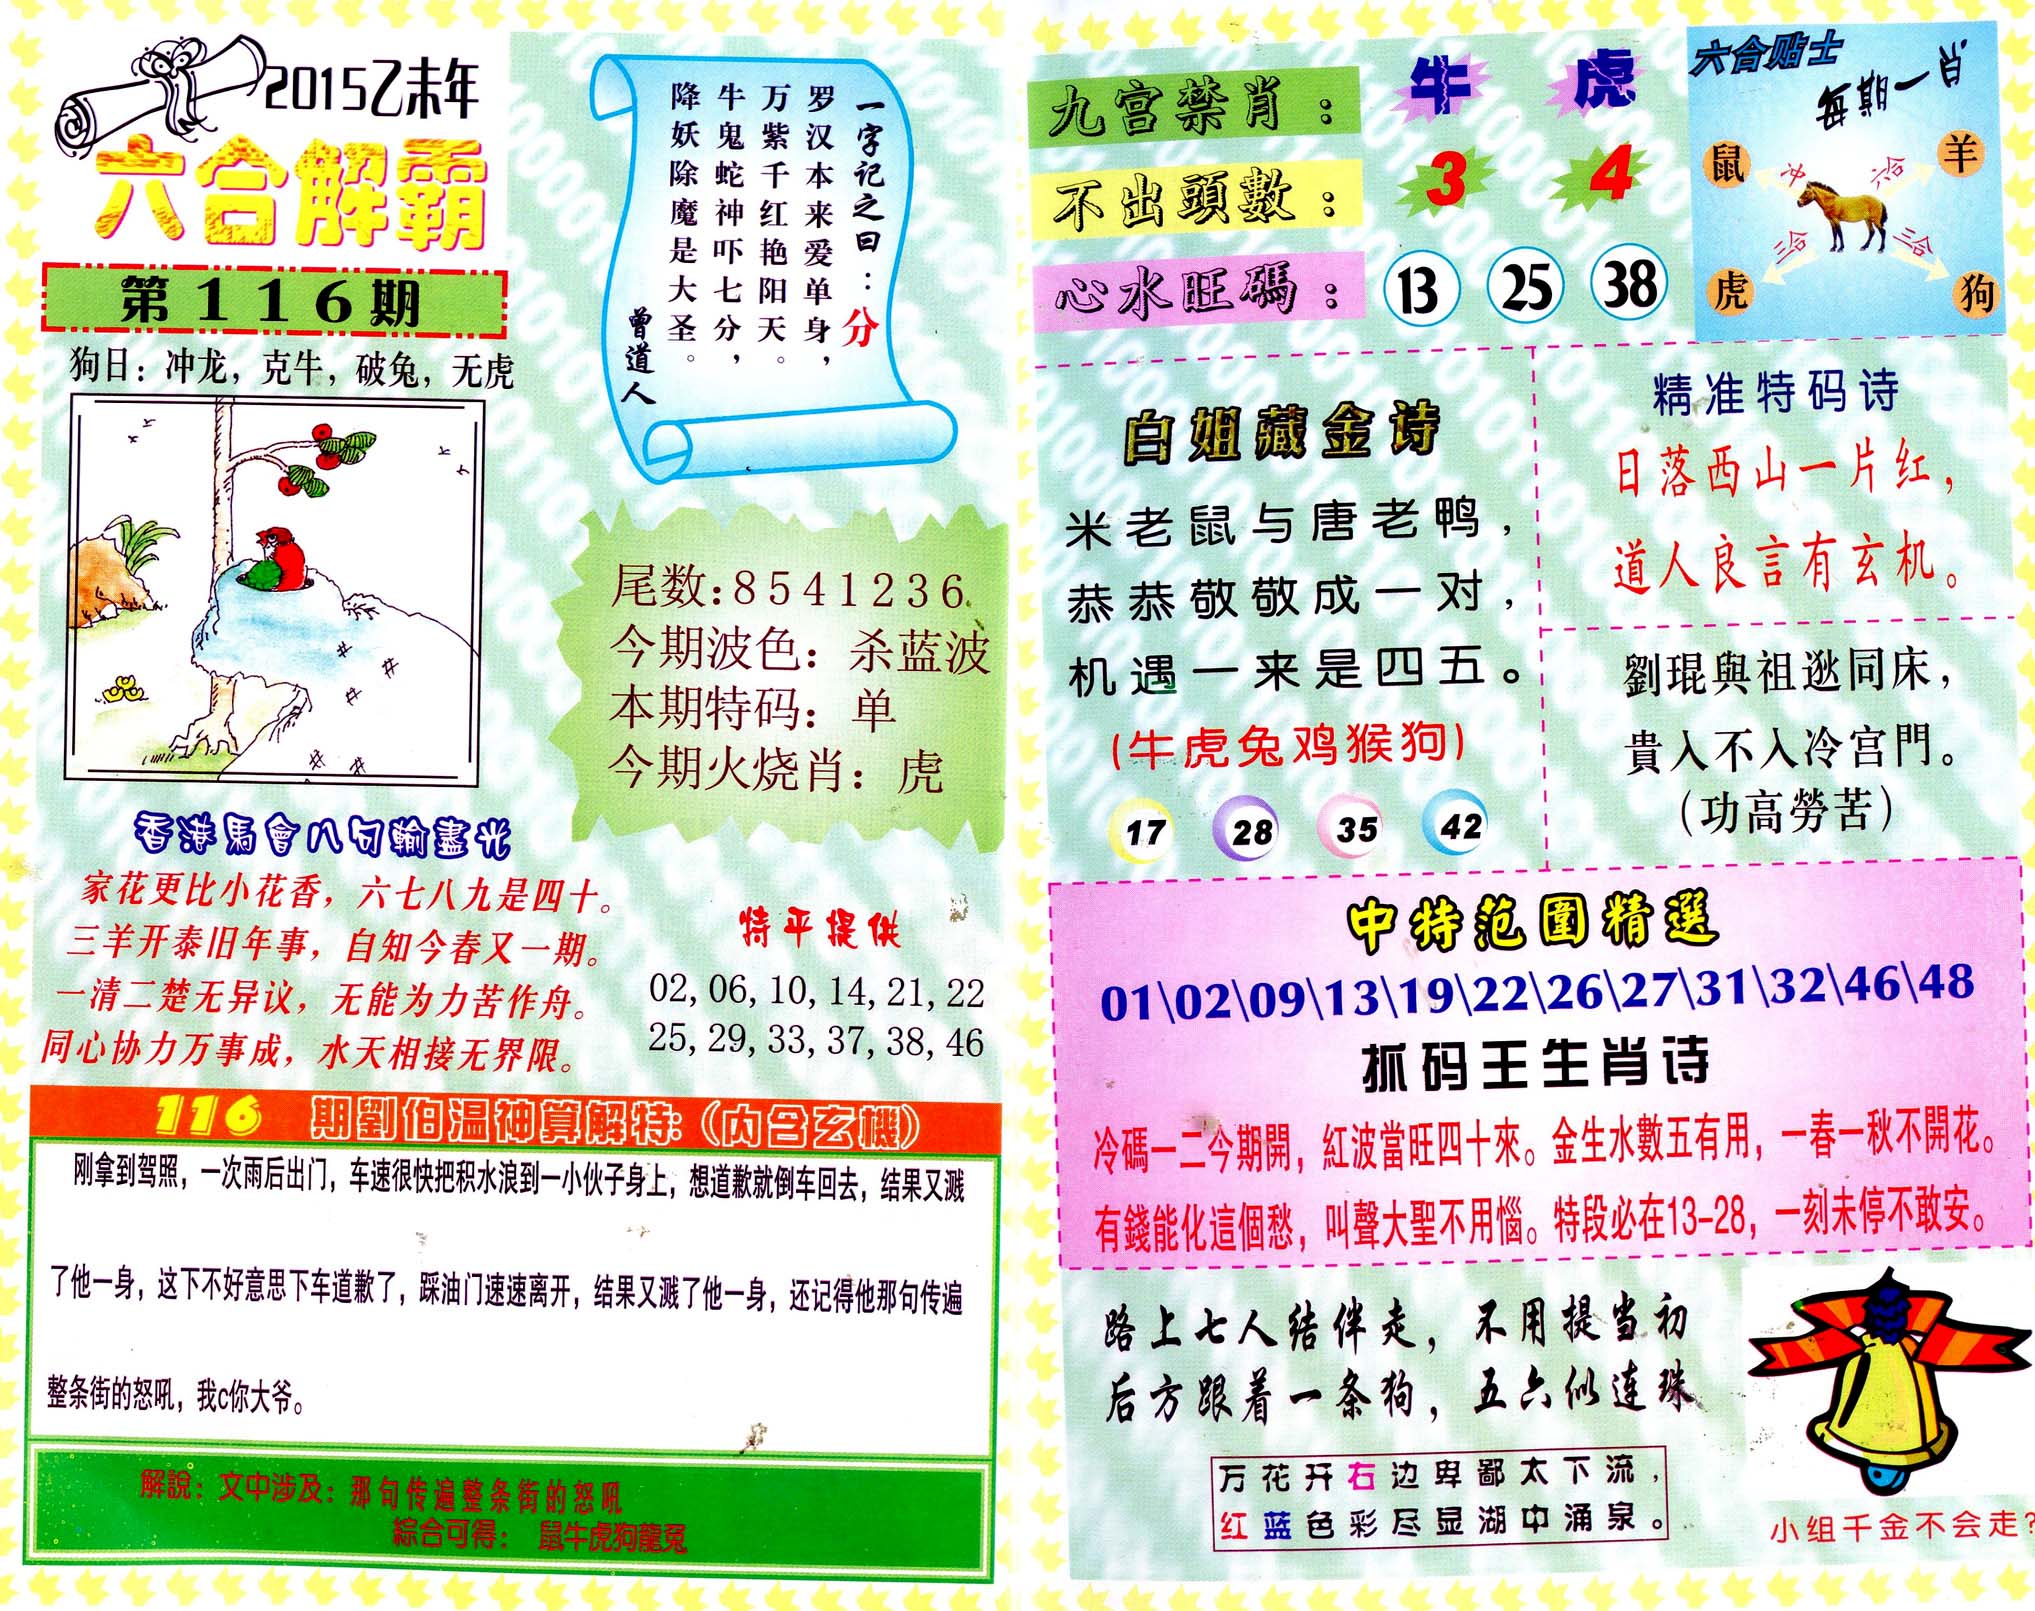 2015乙未年
六合解霸
第116期
狗日：冲龙，克牛，破兔，无虎
一字记之曰：分
罗汉本来爱单身，
万紫千红艳阳天。
牛鬼蛇神吓七分，
降妖除魔是大圣。
曾道人
尾数：8541236.
今期波色：杀蓝波
本期特码：单
今期火烧肖：虎
香港馬會八句輸盡光
家花更比小花香，六七八九是四十。
三羊开泰旧年事，自知今春又一期。
一清二楚无异议，无能为力苦作舟。
同心协力万事成，水天相接无界限。
特平提供
02, 06, 10, 14, 21, 22
25, 29, 33, 37, 38, 46
116 期劉伯温神算解特：(内含玄機)
刚拿到驾照，一次雨后出门，车速很快把积水浪到一小伙子身上，想道歉就倒车回去，结果又溅
了他一身，这下不好意思下车道歉了，踩油门速速离开，结果又溅了他一身，还记得他那句传遍
整条街的怒吼，我c你大爷。
解説：文中涉及：那句传遍整条街的怒吼
綜合可得： 鼠牛虎狗龍兔
九宫禁肖： 牛 虎
不出頭數： 3 4
心水旺碼： 13 25 38
六合贴士
每期一肖
鼠 冲 六合 羊
虎 三合 三合 狗
白姐藏金诗
米老鼠与唐老鸭，
恭恭敬敬成一对，
机遇一来是四五。
(牛虎兔鸡猴狗)
17 28 35 42
精准特码诗
日落西山一片红，
道人良言有玄机。
劉琨與祖逖同床，
貴入不入冷宫門。
（功高勞苦）
中特范圍精選
01\02\09\13\19\22\26\27\31\32\46\48
抓码王生肖诗
冷碼一二今期開，紅波當旺四十來。金生水數五有用，一春一秋不開花。
有錢能化這個愁，叫聲大聖不用惱。特段必在13-28，一刻未停不敢安。
路上七人结伴走，不用提当初
后方跟着一条狗，五六似连珠
万花开右边卑鄙太下流，
红蓝色彩尽显湖中涌泉。
小组千金不会走?